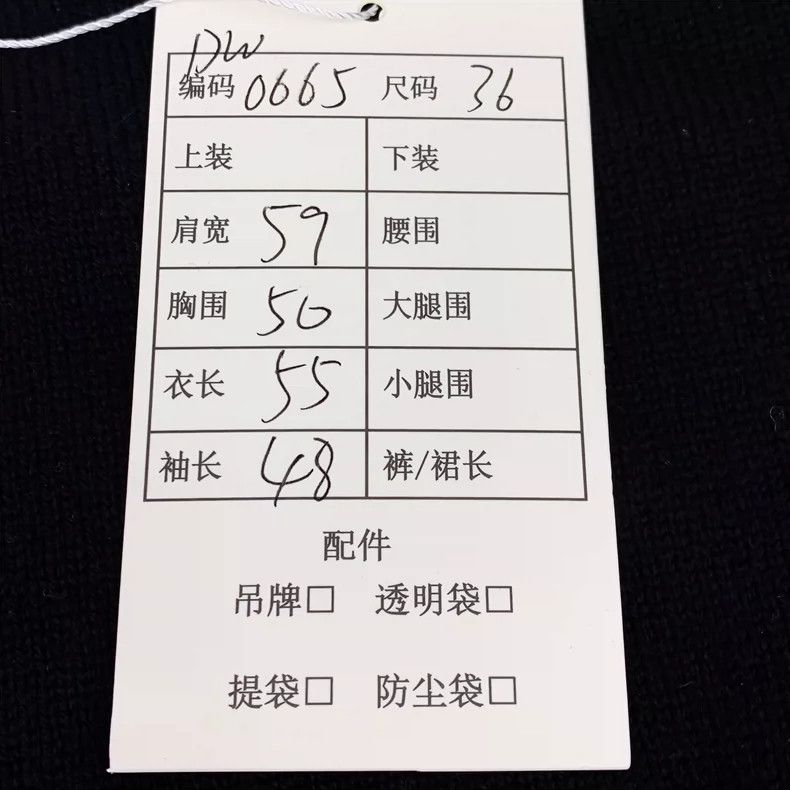 DW
编码 0665 尺码 36
上装 下装
肩宽 59 腰围
胸围 50 大腿围
衣长 55 小腿围
袖长 48 裤/裙长
配件
吊牌□ 透明袋□
提袋□ 防尘袋□